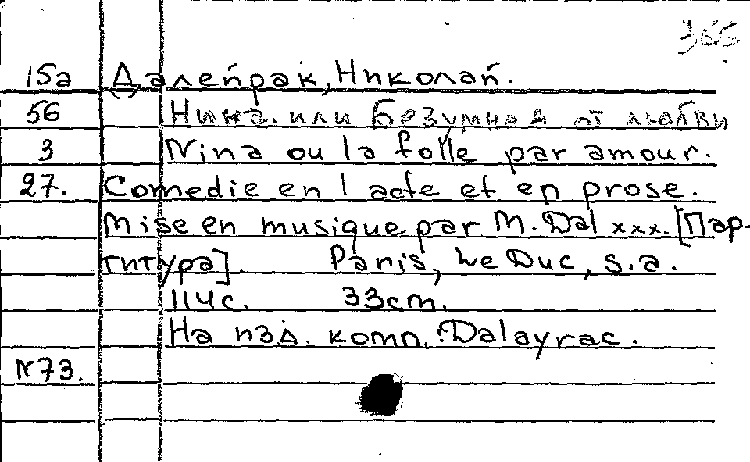 366
15а Далейрак, Николай.
56 Нина. или Безумная от любви
3 Nina ou la folle par amour.
27. Comedie en 1 acte et en prose.
Mise en musique par M. Dal xxx. [Пар-
титура]. Paris, Le Duc, s.a.
114с. 33cm.
На изд. комп.: Dalayrac.
N73.